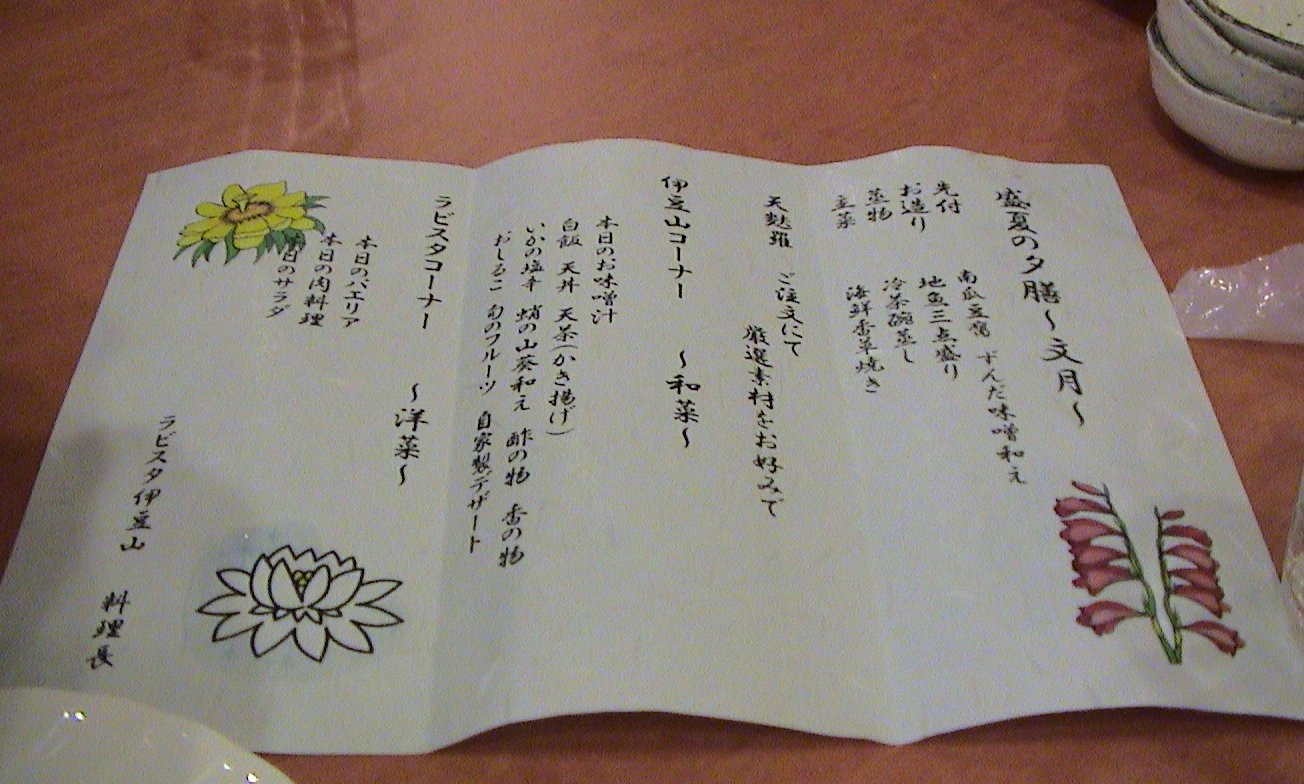 盛夏の夕膳～文月～
先付 南瓜豆腐 ずんだ味噌和え
お造り 地魚三点盛り
蒸物 冷茶碗蒸し
主菜 海鮮香草焼き
天麩羅 ご注文にて
厳選素材をお好みで
伊豆山コーナー ～和菜～
本日のお味噌汁
白飯 天丼 天茶(かき揚げ)
いかの塩辛 蛸の山葵和え 酢の物 香の物
おしるこ 旬のフルーツ 自家製デザート
ラビスタコーナー ～洋菜～
本日のパエリア
本日の肉料理
本日のサラダ
ラビスタ伊豆山 料理長